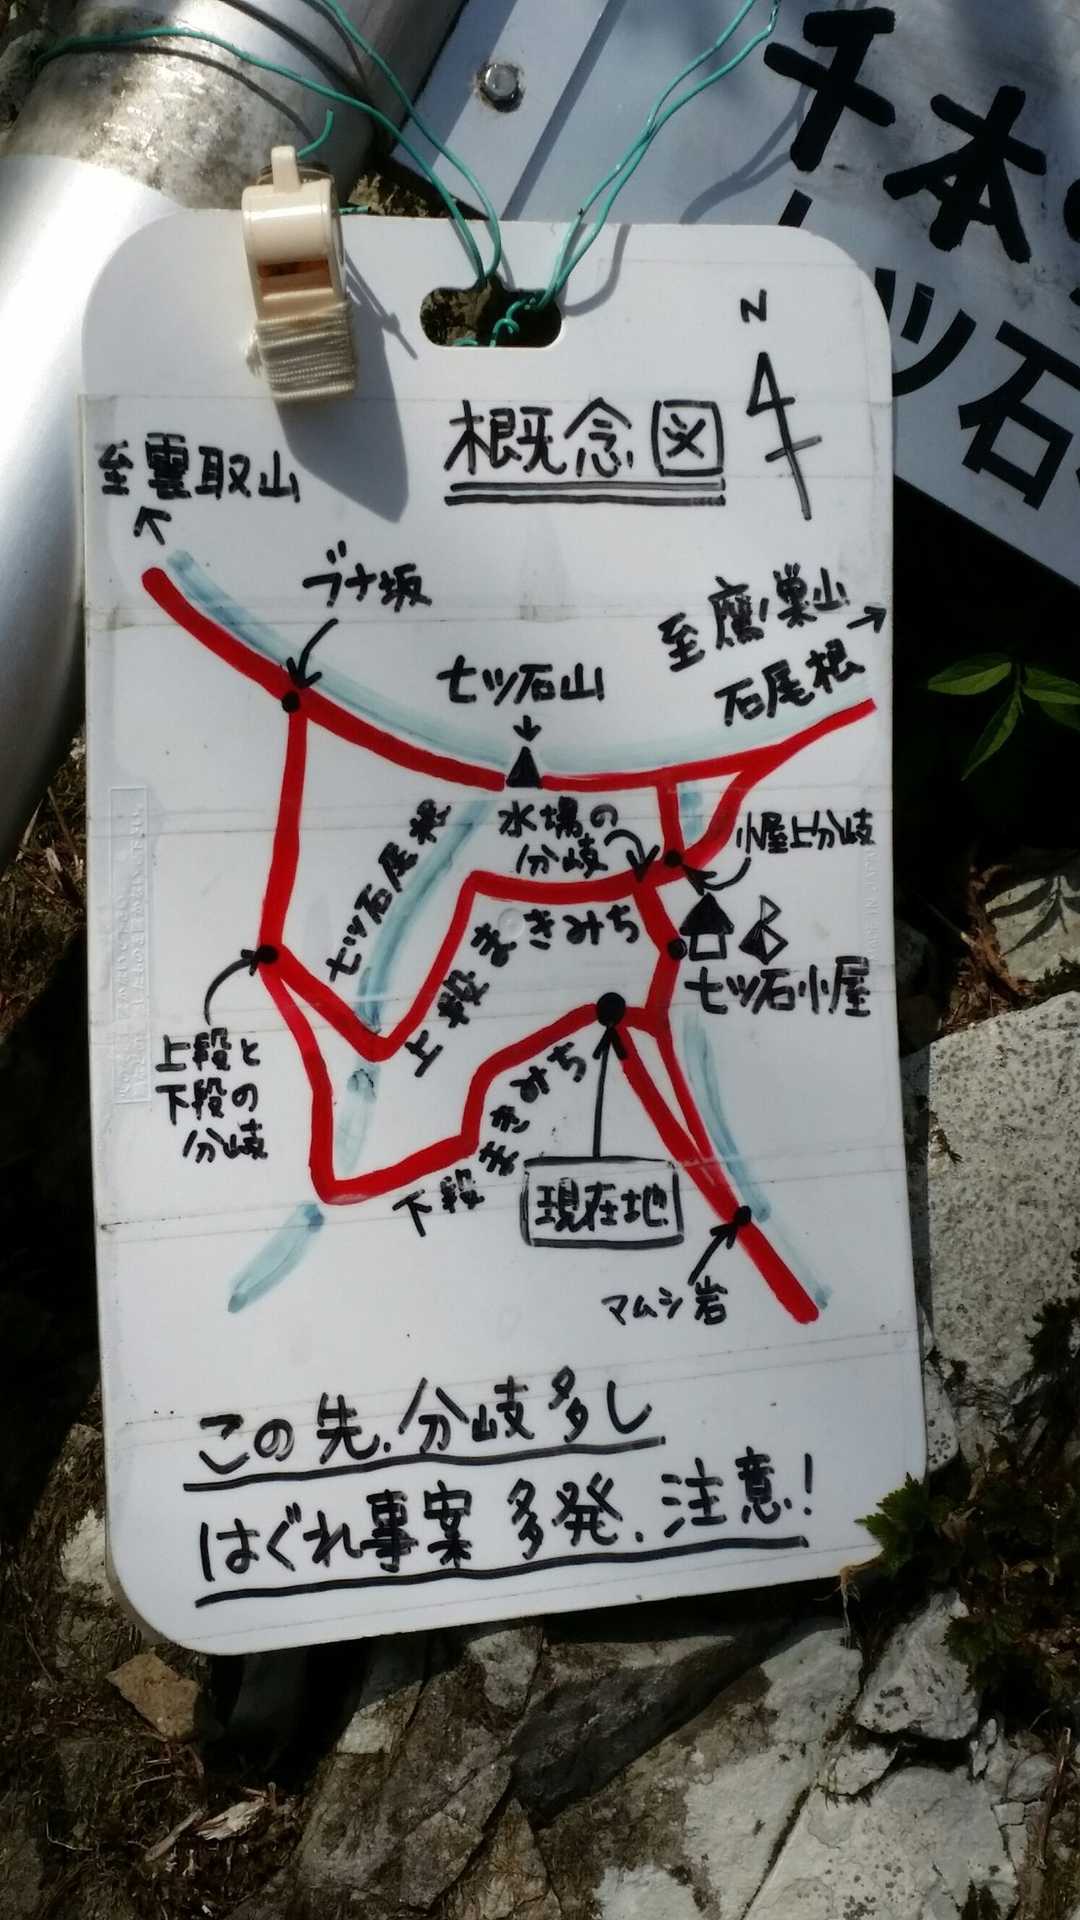 千本
七ツ石
N
概念図
至雲取山
ブナ坂
至鷹ノ巣山
石尾根
七ツ石山
水場の
分岐
小屋上分岐
七ツ石尾根
上段まきみち
七ツ石小屋
上段と
下段の
分岐
下段まきみち
現在地
マムシ岩
この先、分岐多し
はぐれ事案多発、注意!